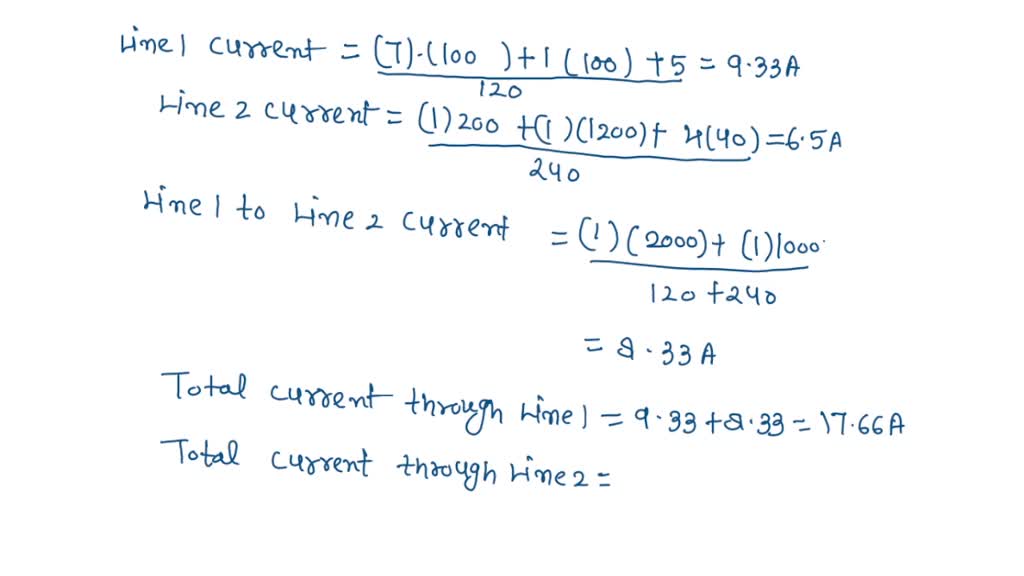 Line 1 current = (7)·(100 ) + 1 (100) + 5 = 9.33A
120
Line 2 current = (1) 200 + (1) (1200) + 4(40) = 6.5A
240
Line 1 to Line 2 current = (1) (2000) + (1) 1000
120 + 240
= 8.33 A
Total current through Line 1 = 9.33 + 8.33 = 17.66A
Total current through Line 2 =